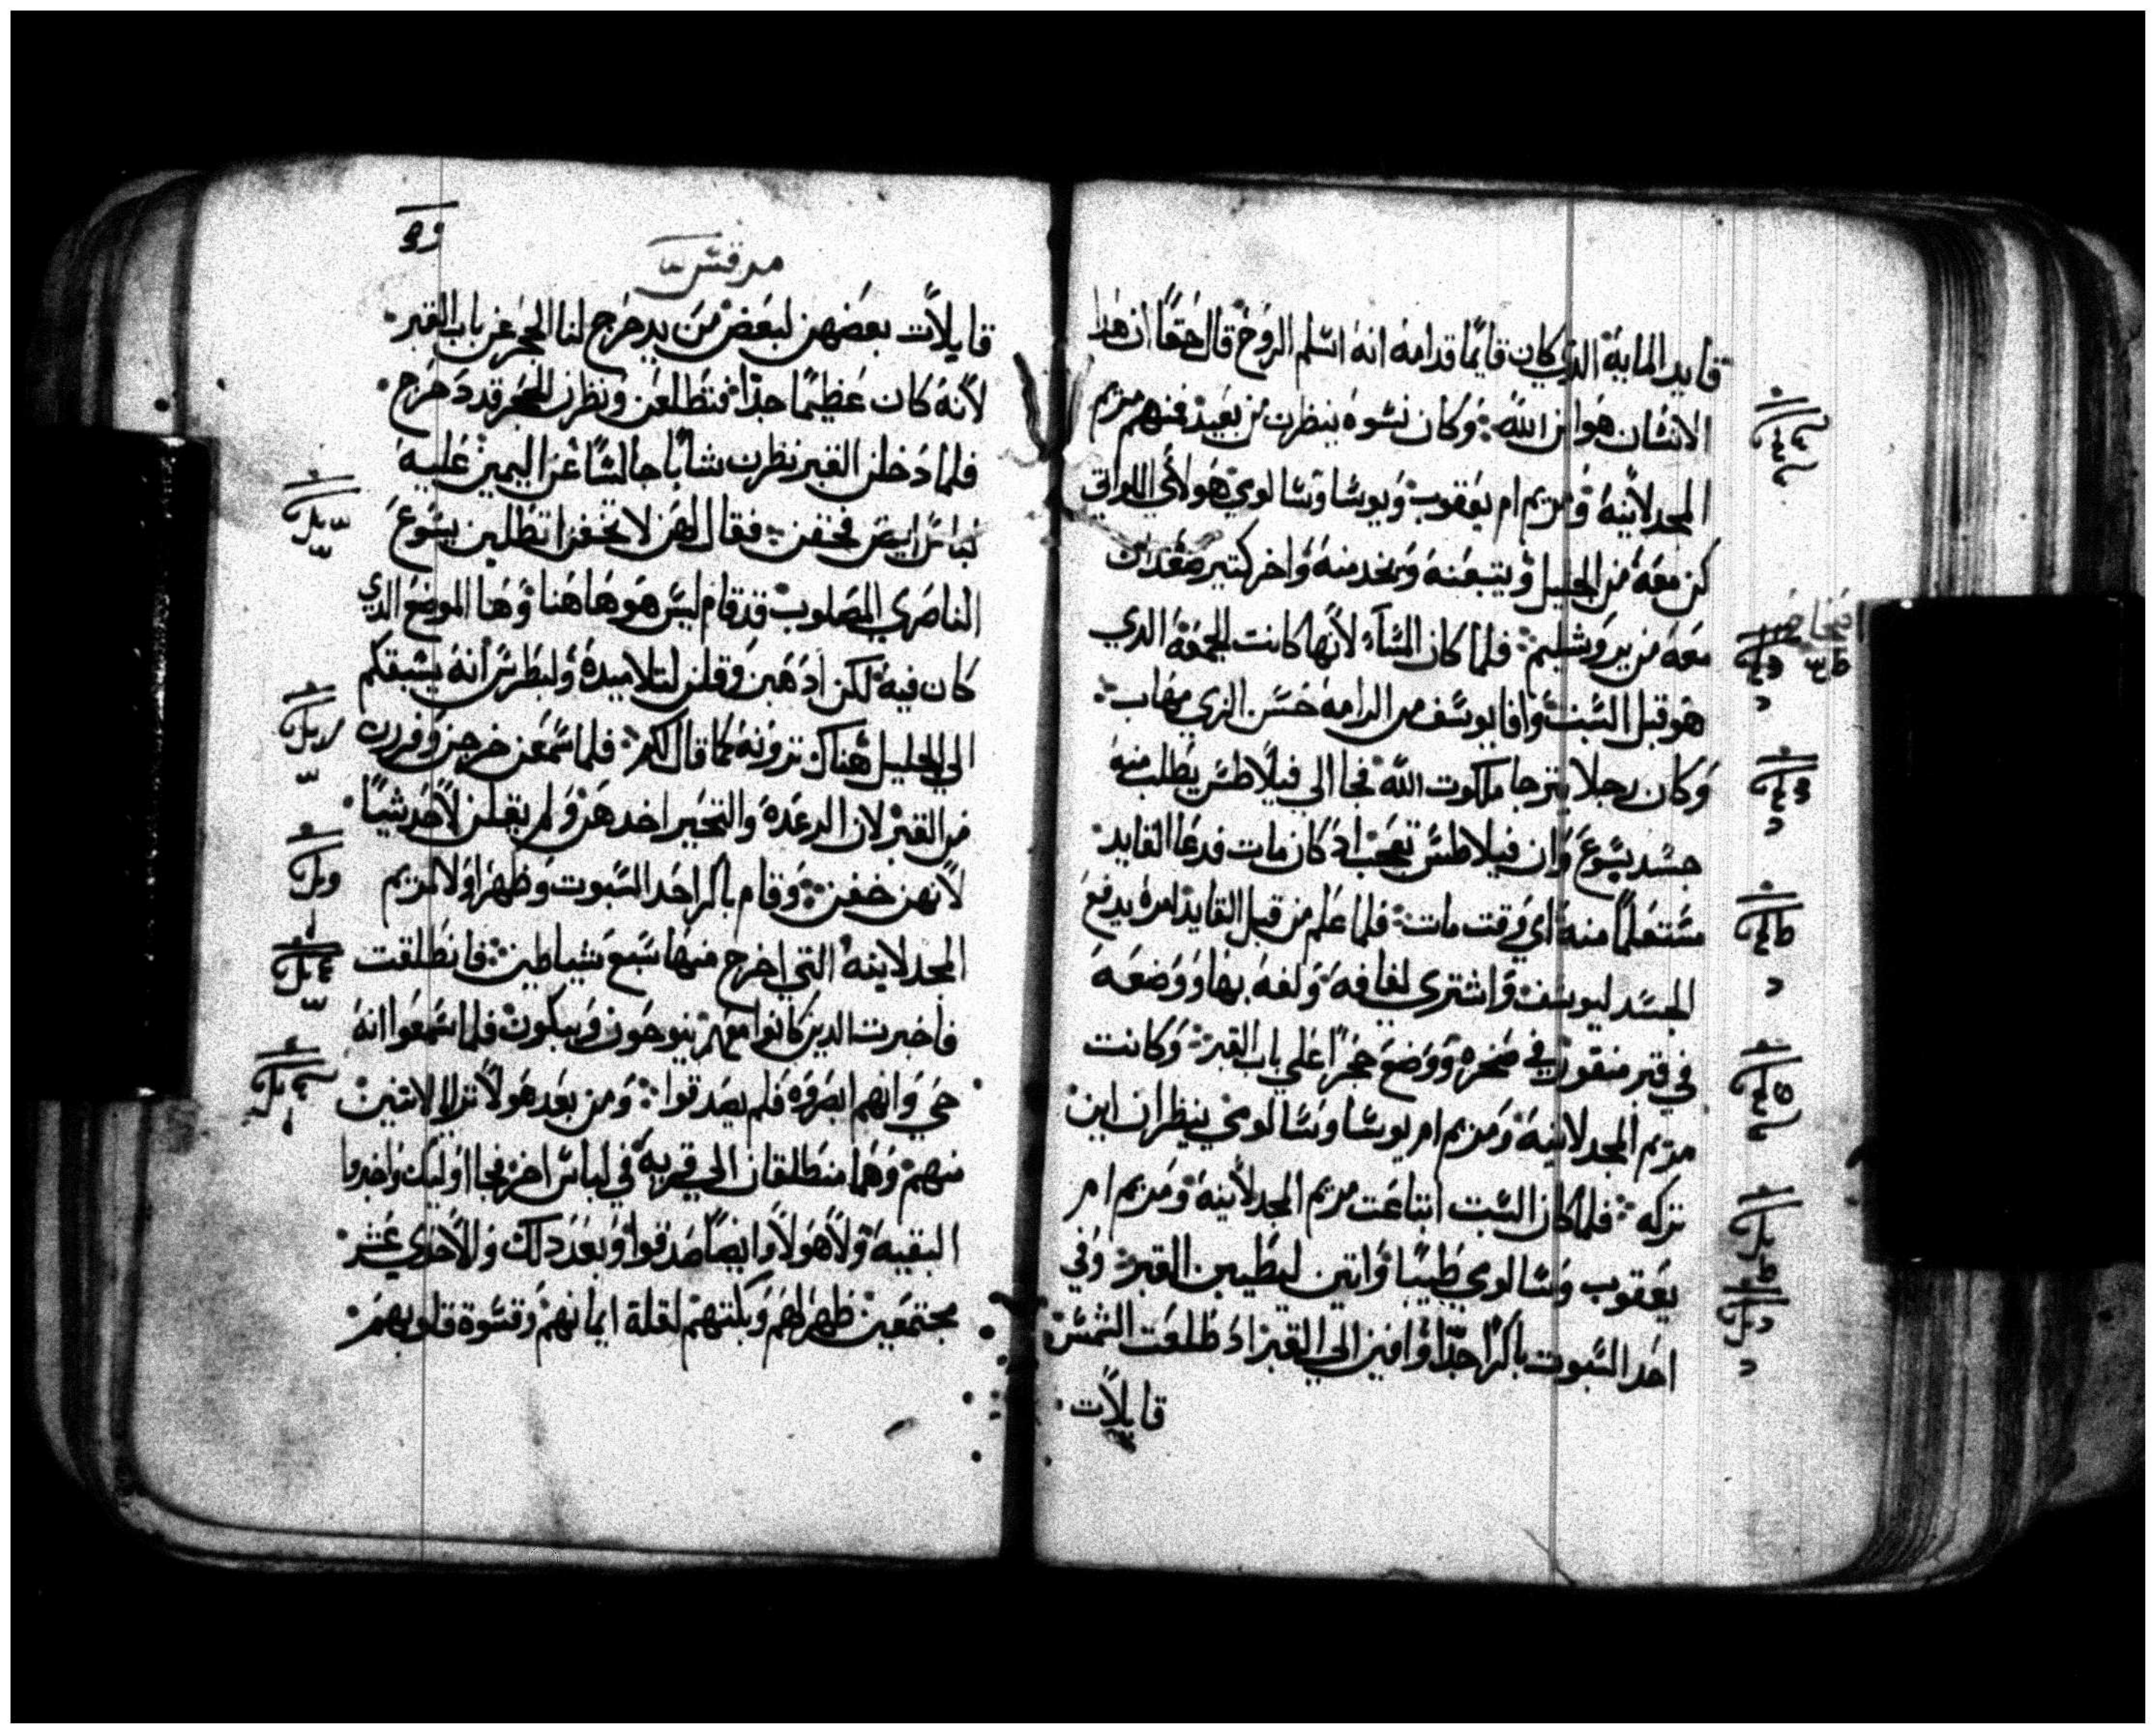 قايد الماية الذي كان قايمًا قدامه انه اسلم الروح قال حقًا ان هدا
الانسان هو ابن الله وكان نسوه ينظرن من بعيد منهم مريم
المجدلانيه ومريم ام يعقوب ويوسا وسالوي هولاي اللواتي
كن معه من الجليل ويتبعنه ويخدمنه واخر كتير صعدن
معه من يروشليم فلما كان المسآء لانها كانت الجمعة الدي
هو قبل السبت وافا يوسف من الرامه حسن الزي مهاب
وكان رجلا يترجا ملكوت الله فجا الي فيلاطس يطلب منه
جسد يسوع وان فيلاطس تعجب اد كان مات فدعا القايد
مستعلمًا منه اي وقت مات فلما علم من قبل القايد امره يدفع
الجسد ليوسف واشتري لفافه ولفه بها ووضعه
في قبر منقور في صخره ووضع حجرًا علي باب القبر وكانت
مريم المجدلانيه ومريم ام يوسا وسالوي ينظران اين
تركه فلما كان السبت ابتاعت مريم المجدلانيه ومريم ام
يعقوب وسالوي طيبًا واتين ليطيبن القبر وفي
احد السبوت باكرًا جدًا وافين الي القبر اد طلعت الشمس
قايلات
مرقس
قايلات بعضهن لبعض من يدحرج لنا الحجر عن باب القبر
لانه كان عظيمًا جدًا فتطلعن ونظرن الحجر قد دحرج
فلما دخلن القبر نظرن شابًا جالسًا عن اليمين عليه
لباس ابيض فخفن فقال لهن لا تخفن اتطلبن يسوع
الناصري المصلوب قد قام ليس هو هاهنا وهنا الموضع الدي
كان فيه لكن ادهبن وقلن لتلاميده ولبطرس انه يسبقكم
الي الجليل هناك ترونه كما قال لكم فلما سمعن خرجن وفررن
من القبر لان الرعده والتحير اخدهن ولم يقلن لاحد شيًا
لانهن خفن وقام باكر احد السبوت وظهر اولا لمريم
المجدلانيه التي اخرج منها سبع شياطين فانطلقت
فاخبرت الدين كانوا معهم ينوحون ويبكون فلما سمعوا انه
حي وانهم ابصروه فلم يصدقوا ومن بعد هولا ترايا لاتنين
منهم وهما منطلقان الي قريه في لباس اخر فجا اوليك واخبروا
البقيه ولا هولا وايضًا صدقوا وبعد دلك والاحدي عشر
مجتمعين ظهر لهم وبكتهم لقلة ايمانهم وقسوة قلوبهم